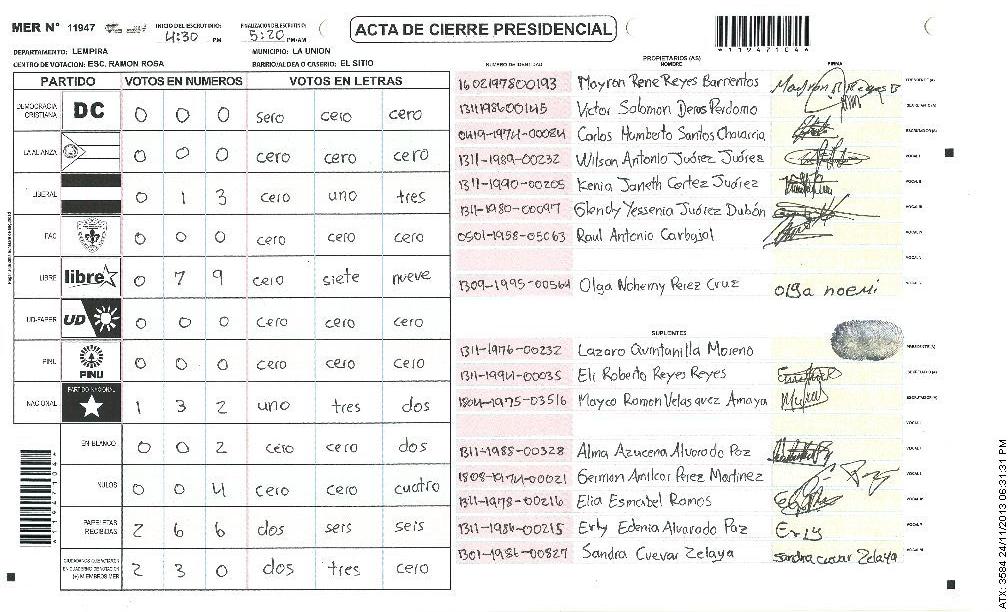 MER N° 11947
INICIO DEL ESCRUTINIO: 4:30 PM
FINALIZACION DEL ESCRUTINIO: 5:20 PM/AM
ACTA DE CIERRE PRESIDENCIAL
DEPARTAMENTO: LEMPIRA
MUNICIPIO: LA UNION
CENTRO DE VOTACION: ESC. RAMON ROSA
BARRIO/ALDEA O CASERIO: EL SITIO
PARTIDO VOTOS EN NUMEROS VOTOS EN LETRAS
DEMOCRACIA CRISTIANA DC 0 0 0 sero cero cero
LA ALIANZA 0 0 0 cero cero cero
LIBERAL 0 1 3 cero uno tres
FAC 0 0 0 cero cero cero
LIBRE libre 0 7 9 cero siete nueve
UD-FAPER UD 0 0 0 cero cero cero
PINU PINU 0 0 0 cero cero cero
NACIONAL PARTIDO NACIONAL 1 3 2 uno tres dos
EN BLANCO 0 0 2 cero cero dos
NULOS 0 0 4 cero cero cuatro
PAPELETAS RECIBIDAS 2 6 6 dos seis seis
CIUDADANOS QUE VOTARON EN CUADERNO DE VOTACION (+) MIEMBROS MER 2 3 0 dos tres cero
PROPIETARIOS (AS)
NUMERO DE IDENTIDAD NOMBRE FIRMA
1602197800193 Mayron Rene Reyes Barrientos
1311198600145 Victor Salomon Deras Perdomo
0419-1974-00084 Carlos Humberto Santos Chavarria
1311-1989-00232 Wilson Antonio Juárez Juárez
1311-1990-00205 Kenia Janeth Cortez Juárez
1311-1980-00097 Glendy Yessenia Juárez Dubón
0501-1958-05063 Raul Antonio Carbajal
1309-1995-00564 Olga Nohemy Perez Cruz olga noemi
SUPLENTES
1311-1976-00232 Lazaro Quintanilla Moreno
1311-1994-00035 Eli Roberto Reyes Reyes
1804-1975-03516 Mayco Ramon Velasquez Amaya
1311-1988-00328 Alma Azucena Alvarado Paz
1808-1974-00021 German Amilcar Perez Martinez
1311-1978-00216 Elia Esmabel Ramos
1311-1986-00215 Erly Edenia Alvarado Paz Erly
1301-1986-00827 Sandra Cuevar Zelaya sandra cuevar Zelaya
ATX: 3584 24/11/2013 06:31:31 PM